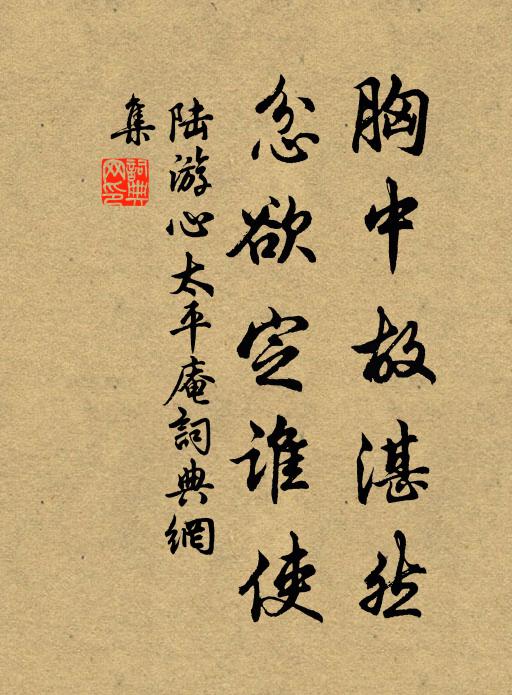 胸中故湛然
忿欲定谁使
陆游心太平庵詞典網
集
詞典
网印